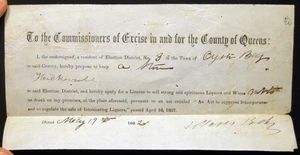 To the Commissioners of Excise in and for the County of Queens:
I, the undersigned, a resident of Election District, No 3 of the Town of Oyster Bay
in said County, hereby propose to keep a Store
in said Election District, and hereby apply for a License to sell strong and spirituous Liquors and Wines
on the premises, pursuant to an entitled "An Act to suppress Intemperance
and to regulate the sale of Intoxicating Liquors," passed April 16, 1857.
Dated May 19 186